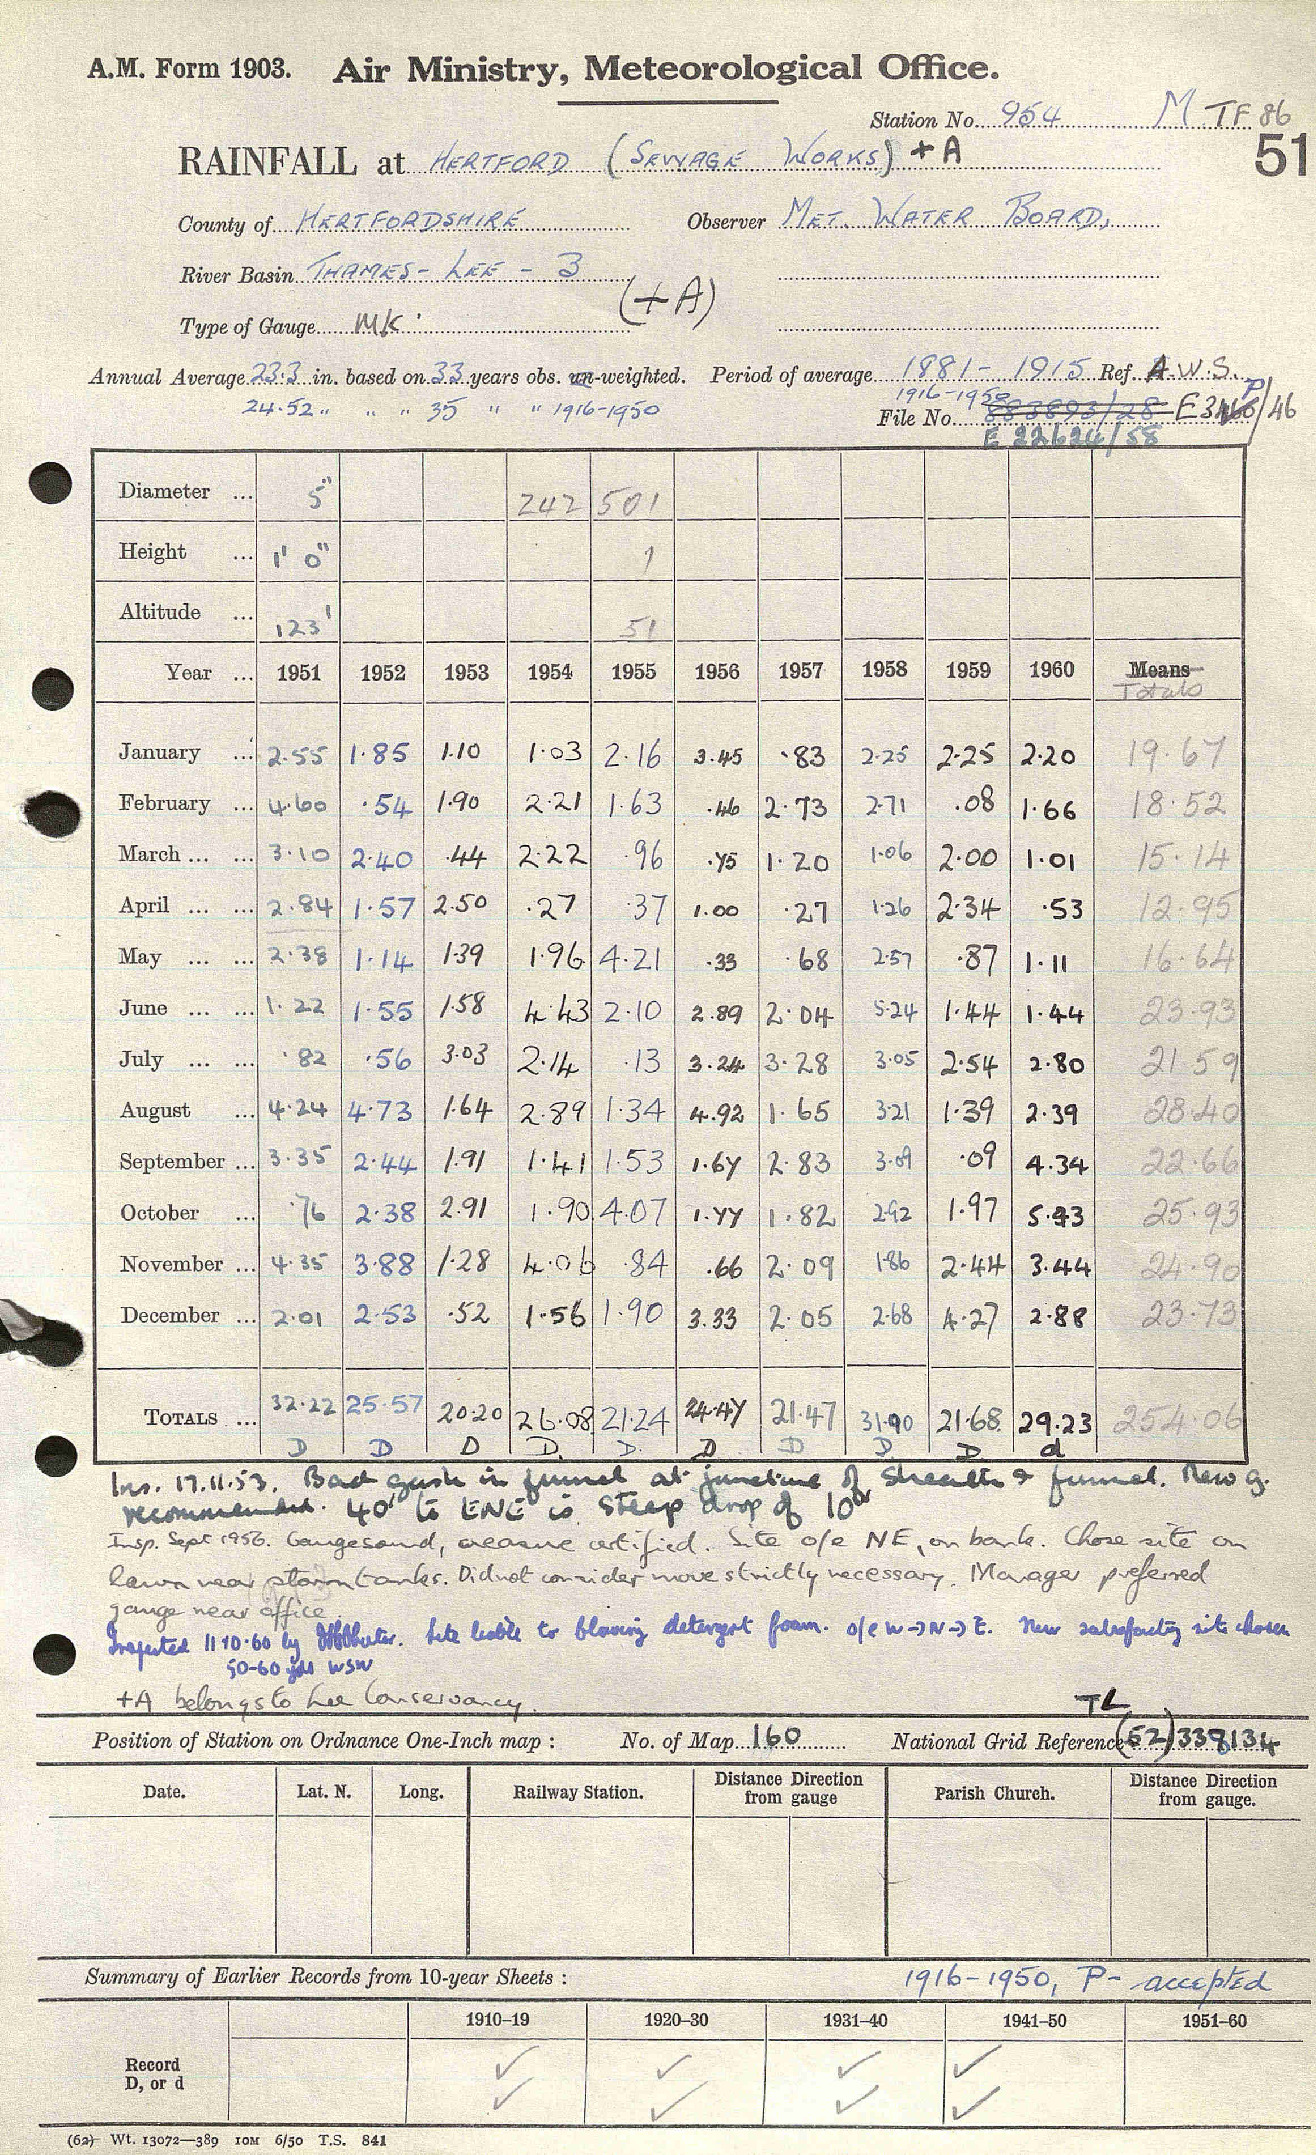 A.M. Form 1903. Air Ministry, Meteorological Office.
Station No. 954 M TF 86
RAINFALL at HERTFORD (SEWAGE WORKS) + A 51
County of HERTFORDSHIRE Observer MET. WATER BOARD,
River Basin THAMES - LEE - 3
(+A)
Type of Gauge MK
Annual Average 23.3 in. based on 33 years obs. un-weighted. Period of average 1881 - 1915 Ref. A.W.S.
24.52 " " " 35 " " 1916-1950 1916-1950
File No. 883893/28 E 346/46
E 22624/58
Diameter ... 5" 242 501
Height ... 1' 0" 1
Altitude ... 123' 51
Year ... 1951 1952 1953 1954 1955 1956 1957 1958 1959 1960 Means
Totals
January ... 2.55 1.85 1.10 1.03 2.16 3.45 .83 2.25 2.25 2.20 19.67
February ... 4.60 .54 1.90 2.21 1.63 .46 2.73 2.71 .08 1.66 18.52
March ... ... 3.10 2.40 .44 2.22 .96 .75 1.20 1.06 2.00 1.01 15.14
April ... ... 2.84 1.57 2.50 .27 .37 1.00 .27 1.26 2.34 .53 12.95
May ... ... 2.38 1.14 1.39 1.96 4.21 .33 .68 2.57 .87 1.11 16.64
June ... ... 1.22 1.55 1.58 4.43 2.10 2.89 2.04 5.24 1.44 1.44 23.93
July ... ... .82 .56 3.03 2.14 .13 3.24 3.28 3.05 2.54 2.80 21.59
August ... 4.24 4.73 1.64 2.89 1.34 4.92 1.65 3.21 1.39 2.39 28.40
September ... 3.35 2.44 1.91 1.41 1.53 1.67 2.83 3.09 .09 4.34 22.66
October ... .76 2.38 2.91 1.90 4.07 1.77 1.82 2.92 1.97 5.43 25.93
November ... 4.35 3.88 1.28 4.06 .84 .66 2.09 1.86 2.44 3.44 24.90
December ... 2.01 2.53 .52 1.56 1.90 3.33 2.05 2.68 4.27 2.88 23.73
TOTALS ... 32.22 25.57 20.20 26.08 21.24 24.47 21.47 31.90 21.68 29.23 254.06
D D D D. D. D D D. D. d
Ins. 17.11.53. Bad gash in funnel at junction of sheath & funnel. New g.
recommended. 40' to ENE is steep drop of 10'
Insp. Sept 1956. Gauge sound, measure certified. Site o/e NE, on bank. Chose site on
lawn near storm tanks. Did not consider move strictly necessary. Manager preferred
gauge near office.
Inspected 11.10.60 by Site liable to blowing detergent foam. o/e W→N→E. New satisfactory site chosen
50-60 yds WSW
+A belongs to Lee Conservancy.
TL
Position of Station on Ordnance One-Inch map : No. of Map 160 National Grid Reference (52) 338134
Date. Lat. N. Long. Railway Station. Distance Direction from gauge Parish Church. Distance Direction from gauge.
Summary of Earlier Records from 10-year Sheets : 1916-1950, P- accepted
1910–19 1920–30 1931–40 1941–50 1951–60
Record ✓ ✓ ✓ ✓
D, or d ✓ ✓ ✓ ✓
(62) Wt. 13072—389 10M 6/50 T.S. 841